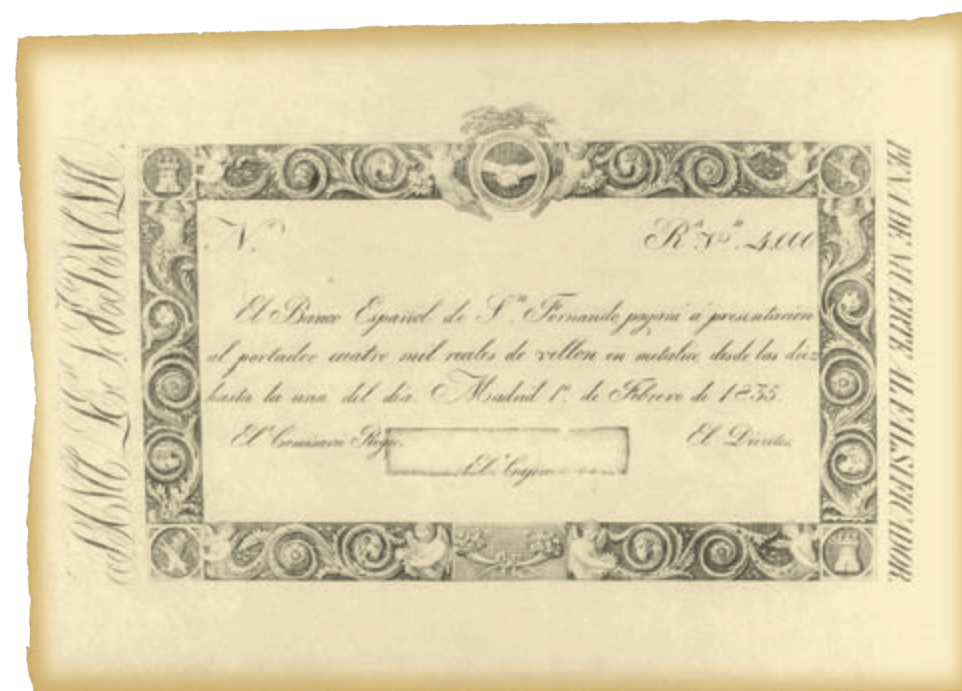 N.º
R.ˢ V.ⁿ 4.000
El Banco Español de S.ⁿ Fernando pagará á presentacion
al portador cuatro mil reales de vellon en metalico desde las diez
hasta la una del dia. Madrid 1º. de Febrero de 1835.
El Comisario Regio.
El Director.
El Cajero
PENA DE MUERTE AL FALSIFICADOR